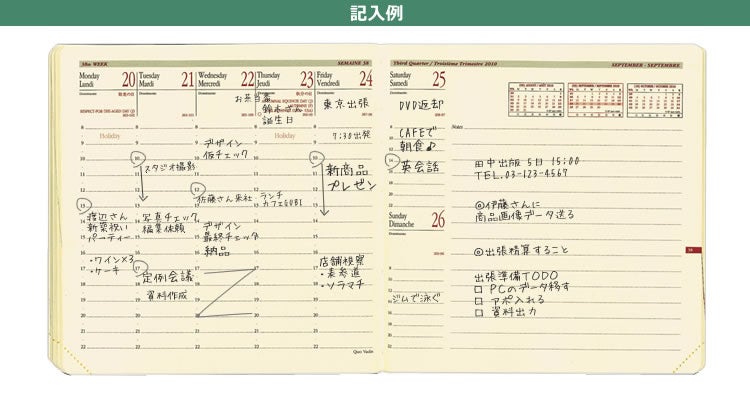 記入例
38th WEEK
SEMAINE 38
Monday
Lundi
20
Tuesday
Mardi
21
Wednesday
Mercredi
22
Thursday
Jeudi
23
Friday
Vendredi
24
Dominante
敬老の日
RESPECT-FOR-THE-AGED DAY (J)
Holiday
13
渡辺さん
新築祝い
パーティー
・ワイン×3
・ケーキ
10
スタジオ撮影
写真チェック
編集依頼
17
定例会議
資料作成
お弁当箱
デザイン
仮チェック
12
佐藤さん来社
デザイン
最終チェック
納品
秋分の日
誕生日
Holiday
ランチ
東京出張
7:30出発
10
新商品
プレゼン
店舗視察
・表参道
・ソラマチ
Quo Vadis
Third Quarter / Troisième Trimestre 2010
SEPTEMBER - SEPTEMBRE
Saturday
Samedi
25
Dominante
DVD返却
CAFEで
朝食♪
英会話
Sunday
Dimanche
26
Dominante
ジムで泳ぐ
Notes
田中出版 5日 15:00
TEL.03-123-4567
◎伊藤さんに
商品画像データ送る
◎出張精算すること
出張準備TODO
□ PCのデータ移す
□ アポ入れる
□ 資料出力
38